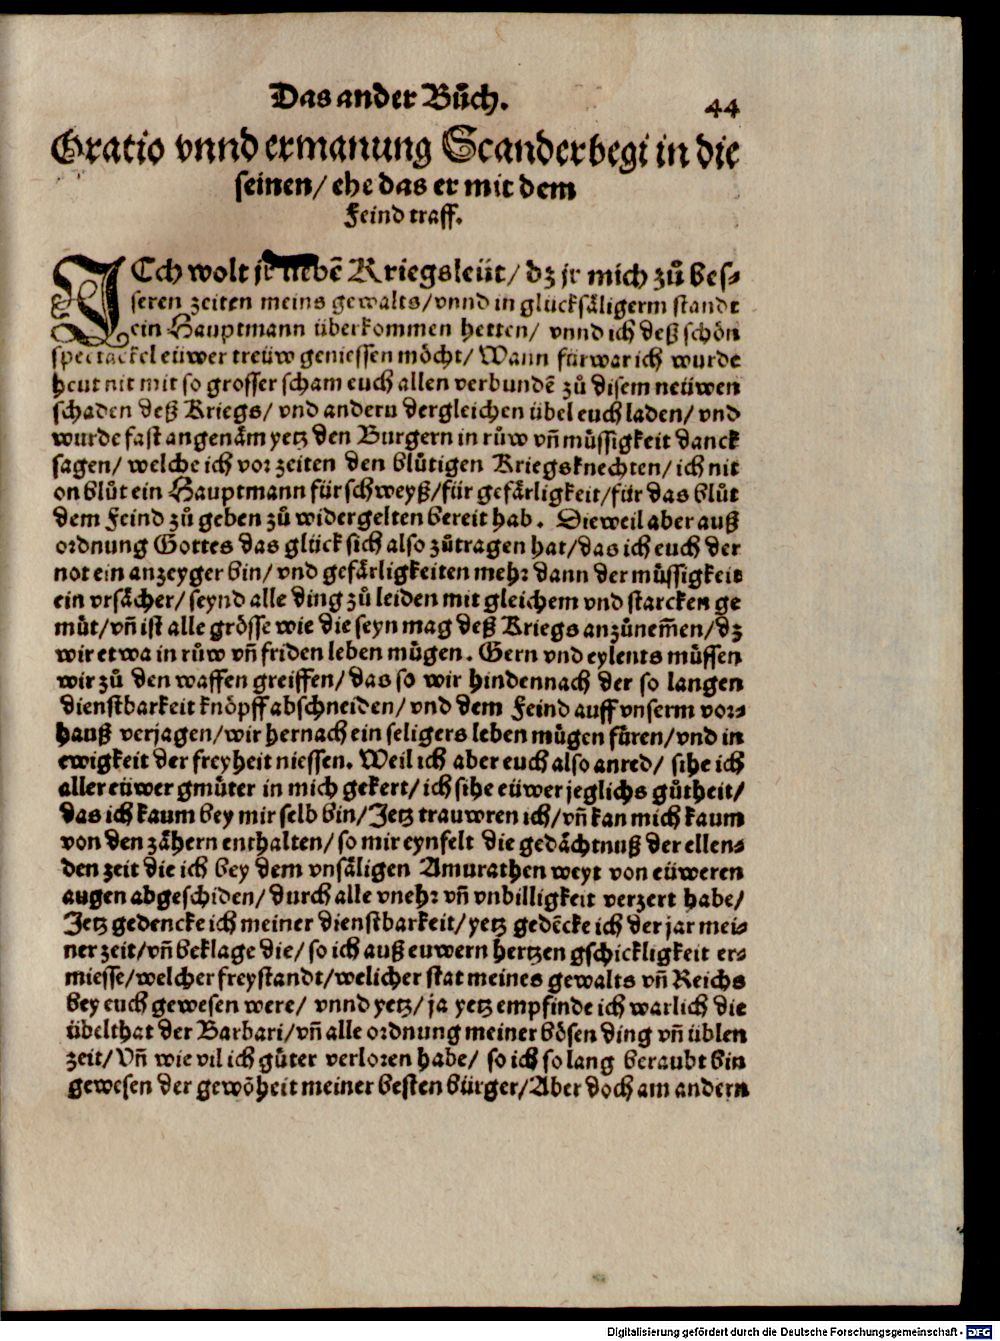 Das ander Bůch.
44
Oratio vnnd ermanung Scanderbegi in die
seinen/ ehe das er mit dem
Feind traff.
ICch wolt jr liebē Kriegsleüt/ dz jr mich zů bes-
seren zeiten meins gewalts/ vnnd in glücksäligerm standt
ein Hauptmann überkommen hetten/ vnnd ich deß schön
spectackel eüwer treüw geniessen möcht/ Wann fürwar ich wurde
heut nit mit so grosser scham euch allen verbundē zů disem neüwen
schaden deß Kriegs/ vnd andern dergleichen übel euch laden/ vnd
wurde fast angenäm yetz den Burgern in růw vñ müssigkeit danck
sagen/ welche ich vor zeiten den blůtigen Kriegsknechten/ ich nit
on blůt ein Hauptmann für schweyß/ für gefärligkeit/ für das blůt
dem Feind zů geben zů widergelten bereit hab. Dieweil aber auß
ordnung Gottes das glück sich also zůtragen hat/ das ich euch der
not ein anzeyger bin/ vnd gefärligkeiten mehr dann der müssigkeit
ein vrsächer/ seynd alle ding zů leiden mit gleichem vnd starcken ge
můt/ vñ ist alle grösse wie die seyn mag deß Kriegs anzůnem̄en/ dz
wir etwa in růw vñ friden leben mügen. Gern vnd eylents müssen
wir zů den waffen greiffen/ das so wir hindennach der so langen
dienstbarkeit knöpff abschneiden/ vnd dem Feind auff vnserm vor-
hauß verjagen/ wir hernach ein seligers leben mügen füren/ vnd in
ewigkeit der freyheit niessen. Weil ich aber euch also anred/ sihe ich
aller eüwer gmüter in mich gekert/ ich sihe eüwer jeglichs gůtheit/
das ich kaum bey mir selb bin/ Jetz trauwren ich/ vñ kan mich kaum
von den zähern enthalten/ so mir eynfelt die gedächtnuß der ellen-
den zeit die ich bey dem vnsäligen Amurathen weyt von eüweren
augen abgeschiden/ durch alle vnehr vñ vnbilligkeit verzert habe/
Jetz gedencke ich meiner dienstbarkeit/ yetz gedēcke ich der jar mei-
ner zeit/ vñ beklage die/ so ich auß euwern hertzen gschickligkeit er-
miesse/ welcher freystandt/ welicher stat meines gewalts vñ Reichs
bey euch gewesen were/ vnnd yetz/ ja yetz empfinde ich warlich die
übelthat der Barbari/ vñ alle ordnung meiner bösen ding vñ üblen
zeit/ Vñ wie vil ich güter verloren habe/ so ich so lang beraubt bin
gewesen der gewōheit meiner besten bürger/ Aber doch am andern
Digitalisierung gefördert durch die Deutsche Forschungsgemeinschaft - DFG